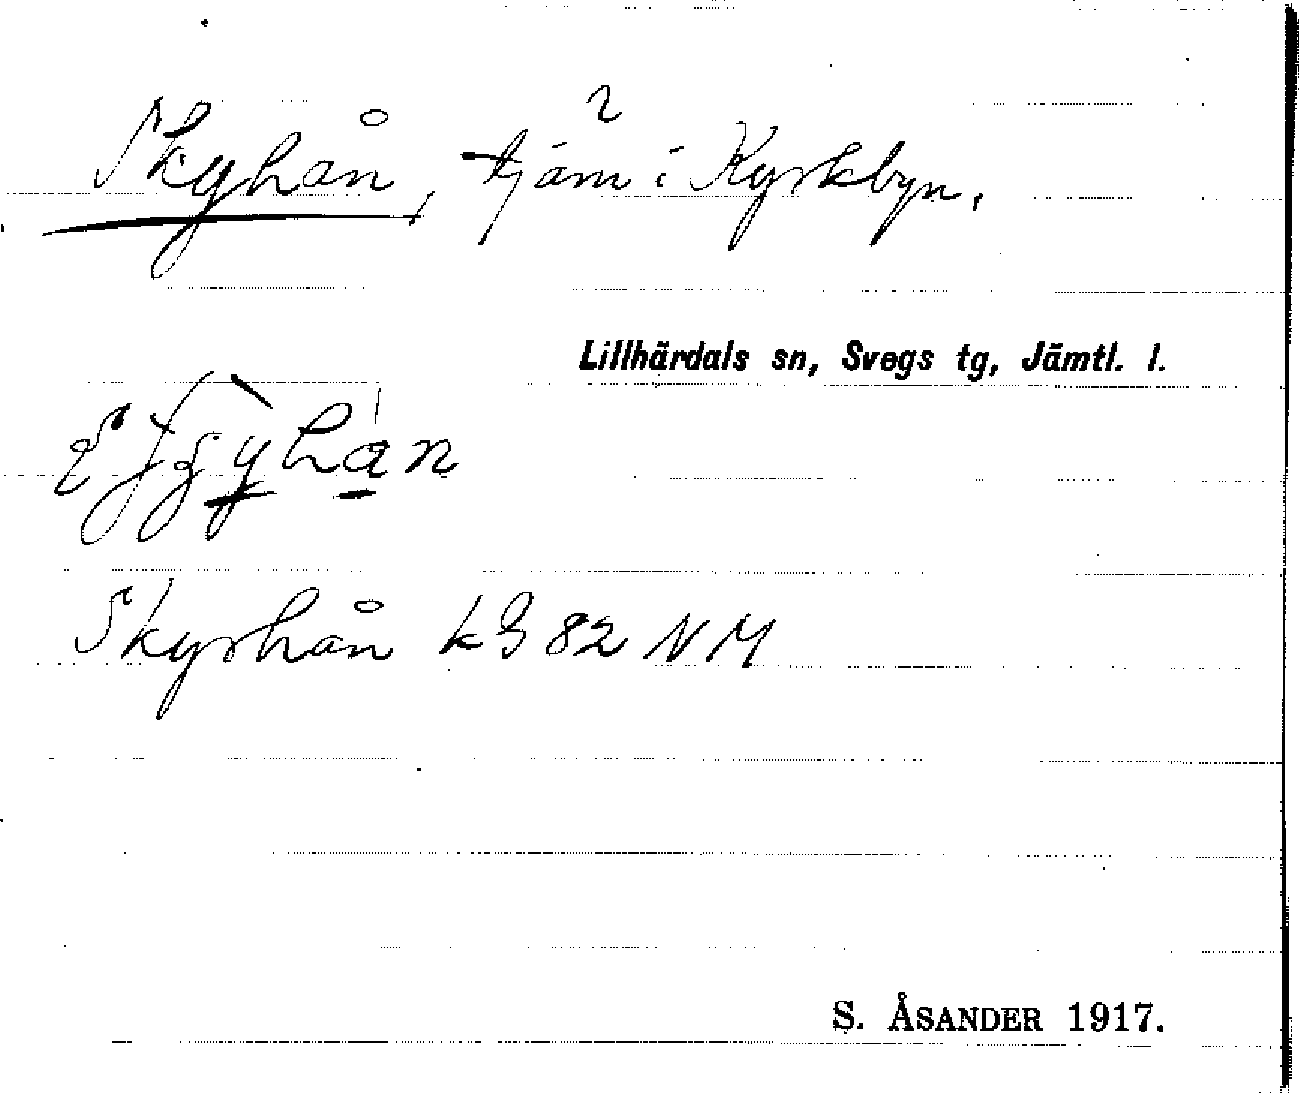 Skyhån, tjärn i Kyrkbyn.
Lillhärdals sn, Svegs tg, Jämtl. l.
Skyrhån k 3 82 NM
S. ÅSANDER 1917.